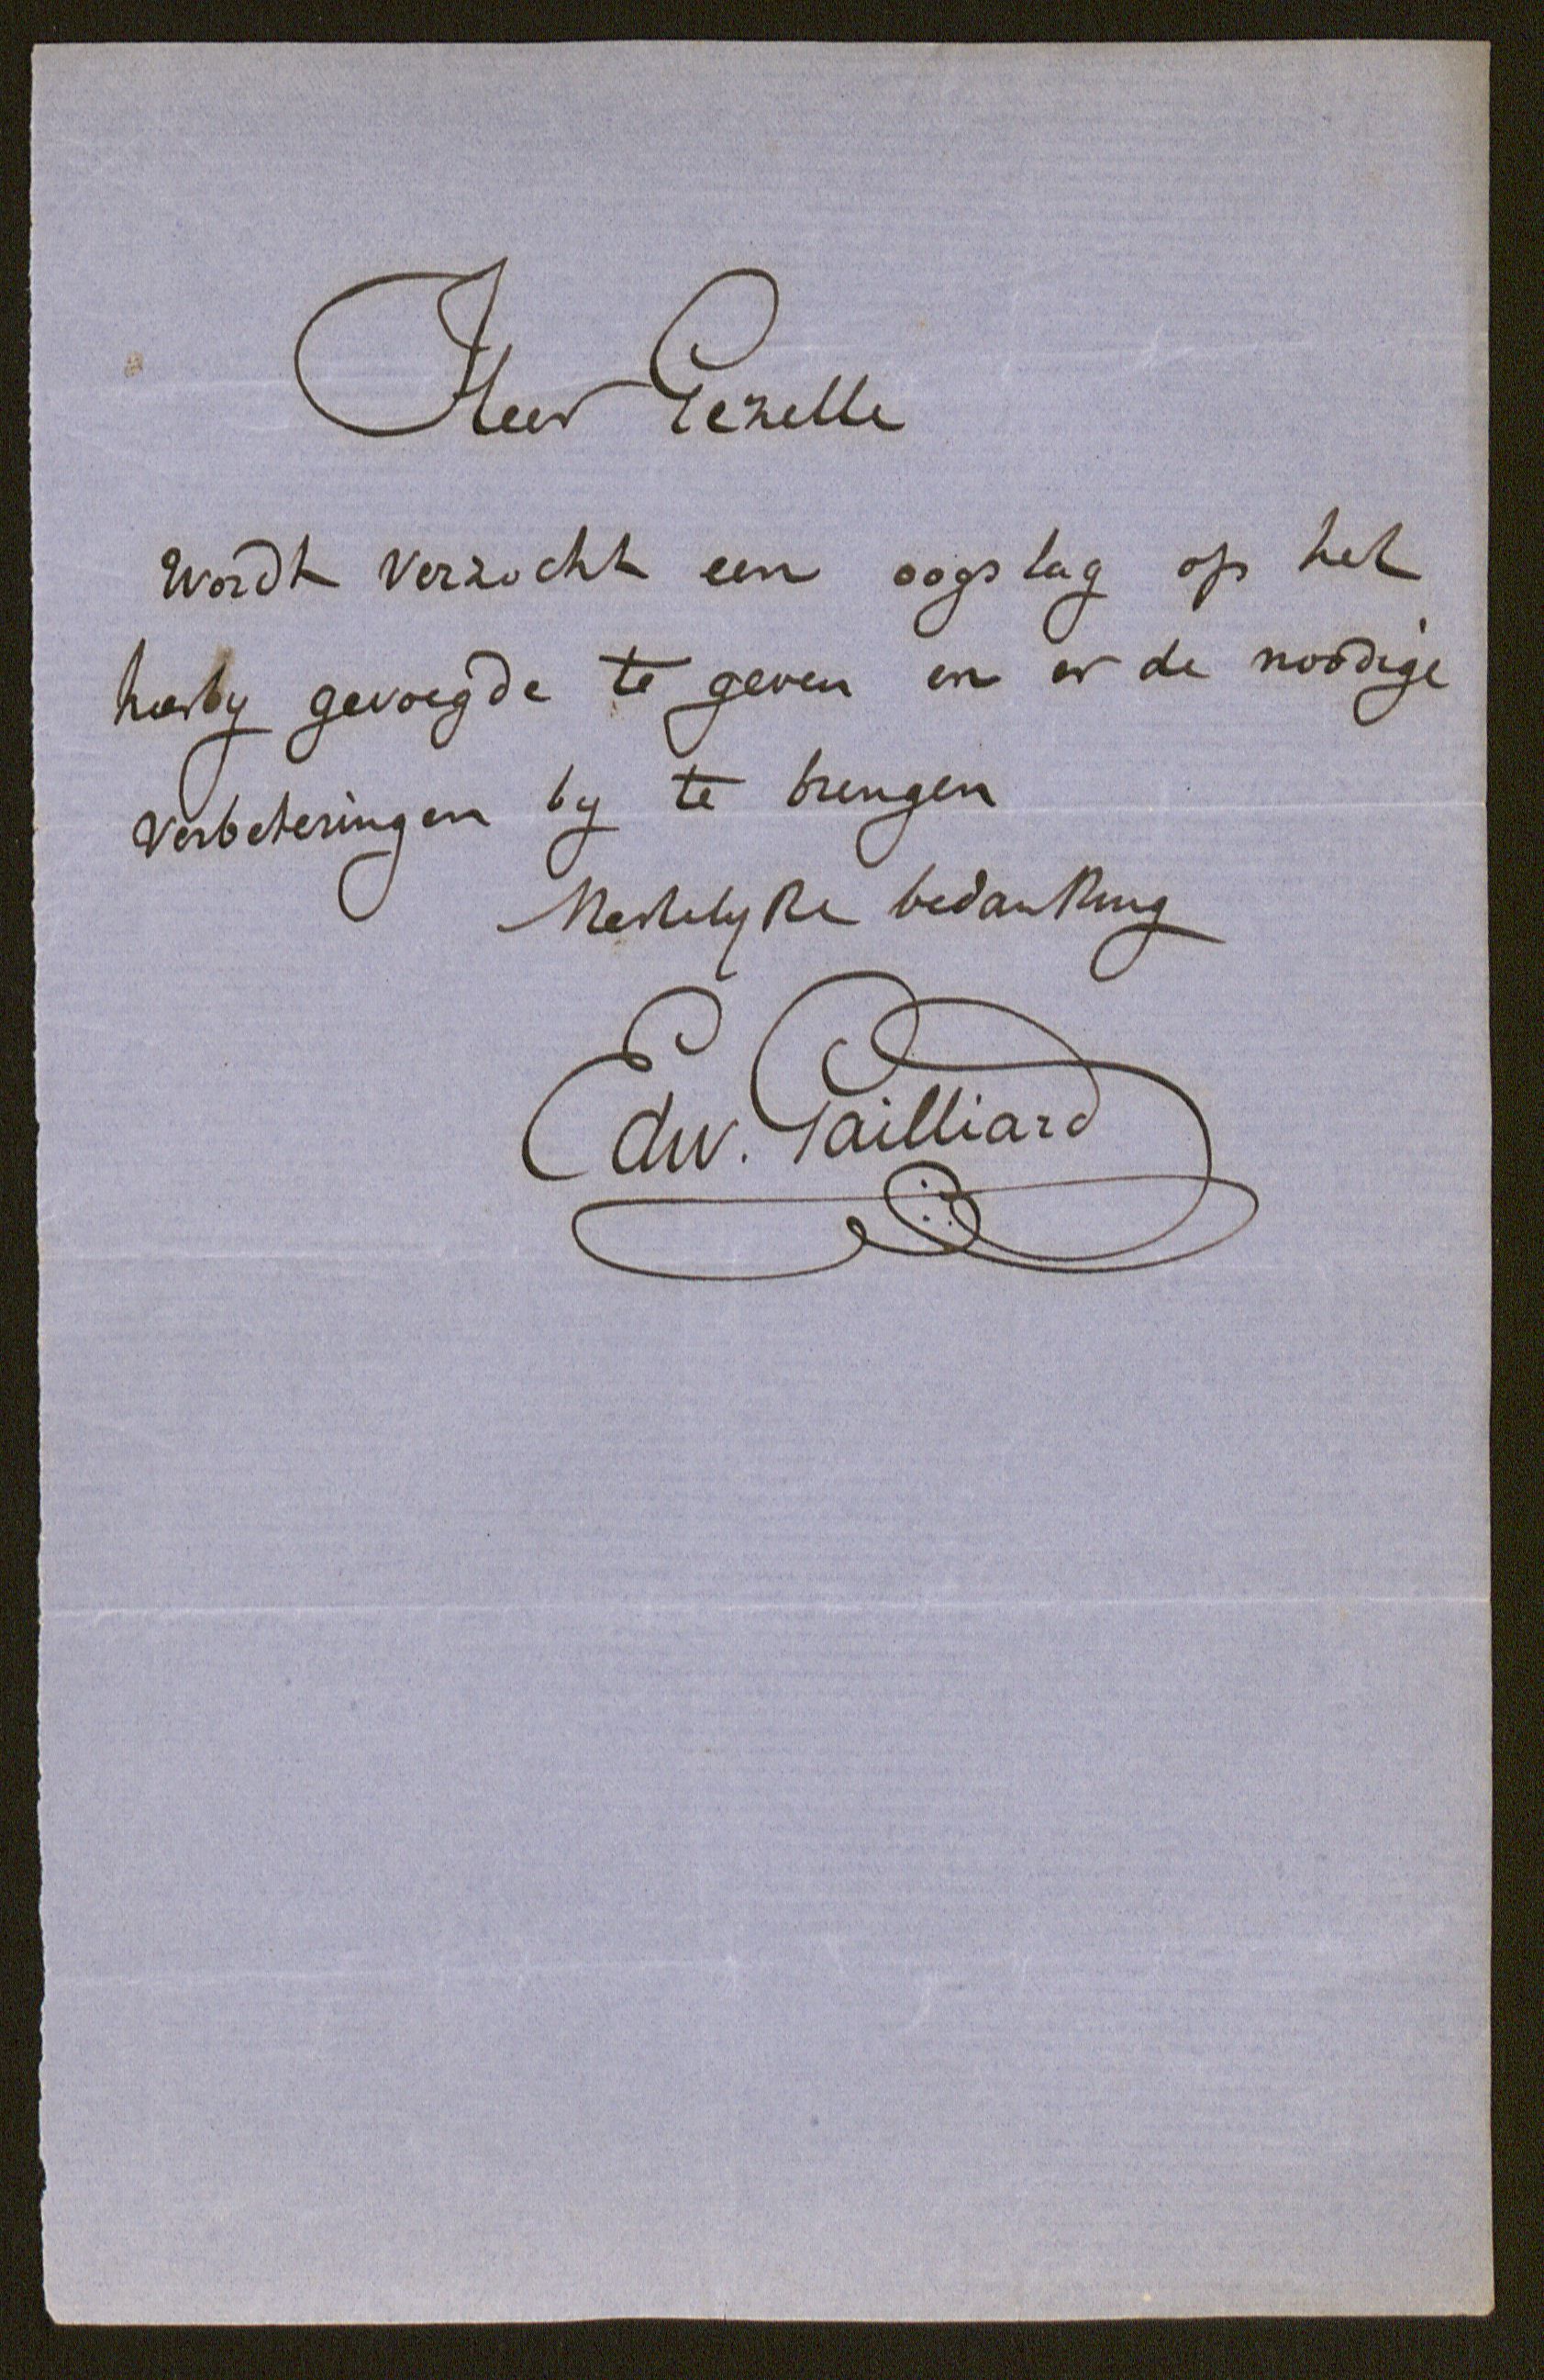 Heer Gezelle
Wordt verzocht een oogslag op het
hierby gevoegde te geven en er de noodige
verbeteringen by te brengen
Hertelyke bedanking
Edw. Gailliard